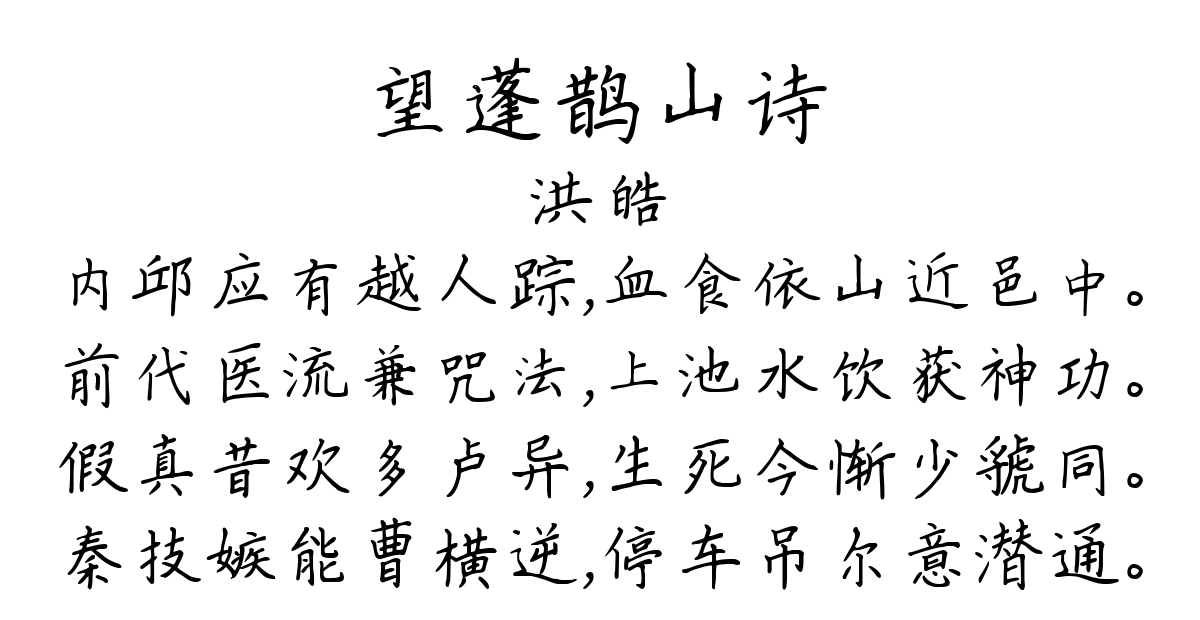 望蓬鹊山诗
洪皓
内邱应有越人踪,血食依山近邑中。
前代医流兼咒法,上池水饮获神功。
假真昔欢多卢异,生死今惭少虢同。
秦技嫉能曹横逆,停车吊尔意潜通。